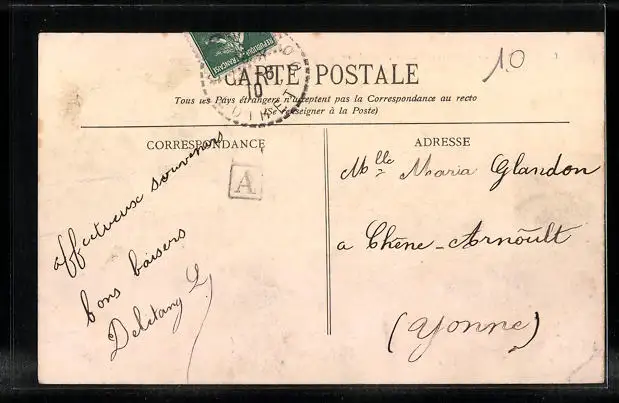 10
RÉPUBLIQUE FRANÇAISE
CARTE POSTALE
Tous les Pays étrangers n'acceptent pas la Correspondance au recto
(Se renseigner à la Poste)
CORRESPONDANCE
affectueux souvenirs
bons baisers
Deletang L
A
ADRESSE
Mlle Maria Glandon
a Chêne-Arnoult
(Yonne)